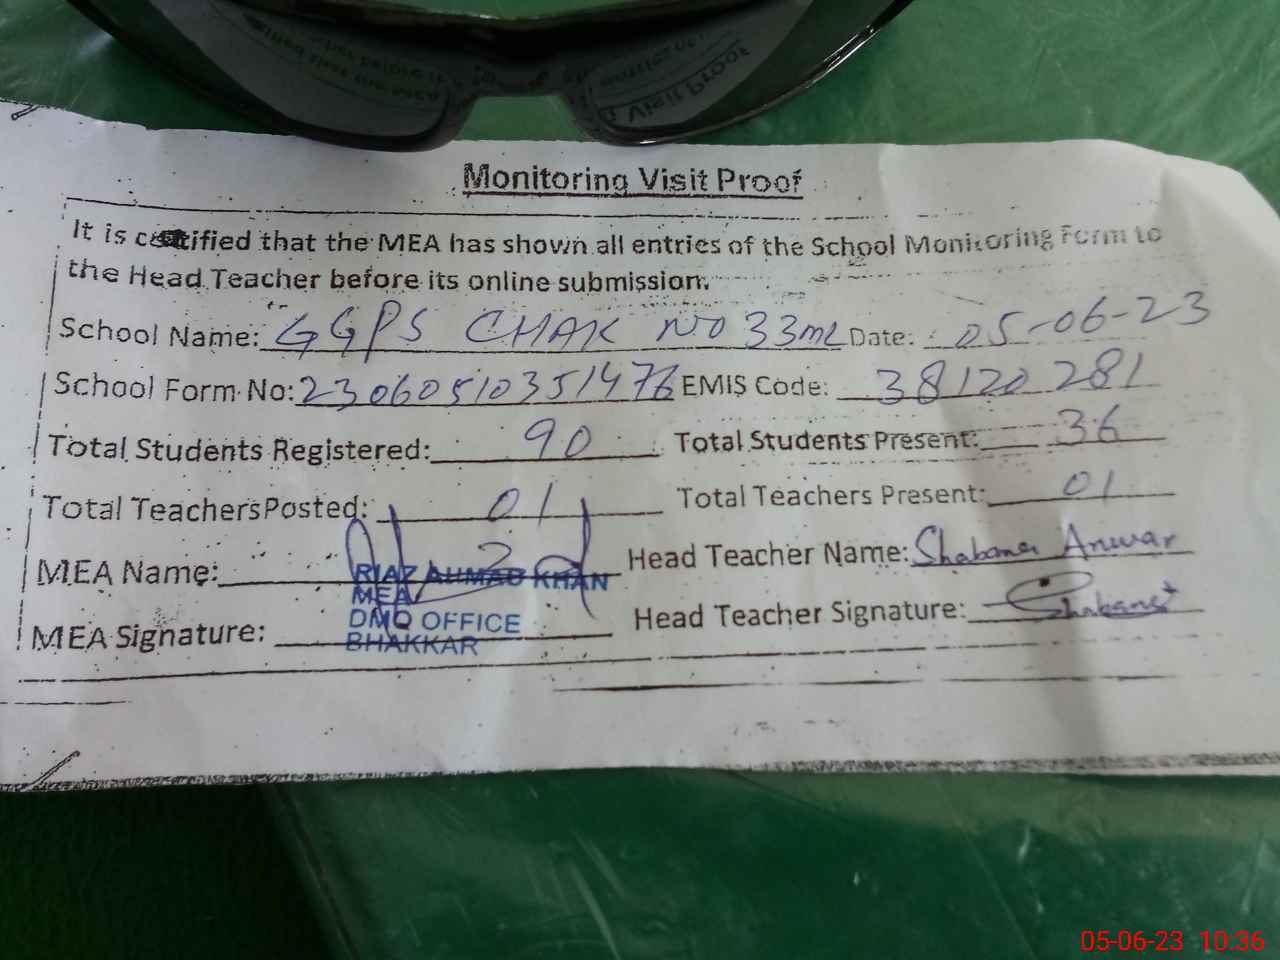 Monitoring Visit Proof
It is certified that the MEA has shown all entries of the School Monitoring Form to
the Head Teacher before its online submission.
School Name: GGPS CHAK NO 33ML Date: 05-06-23
School Form No: 23060510351476 EMIS Code: 38120281
Total Students Registered: 90 Total Students Present: 36
Total Teachers Posted: 01 Total Teachers Present: 01
MEA Name: RIAZ AHMAD KHAN Head Teacher Name: Shabana Anwar
MEA
DMO OFFICE
MEA Signature: BHAKKAR Head Teacher Signature: Shabana
05-06-23 10:36